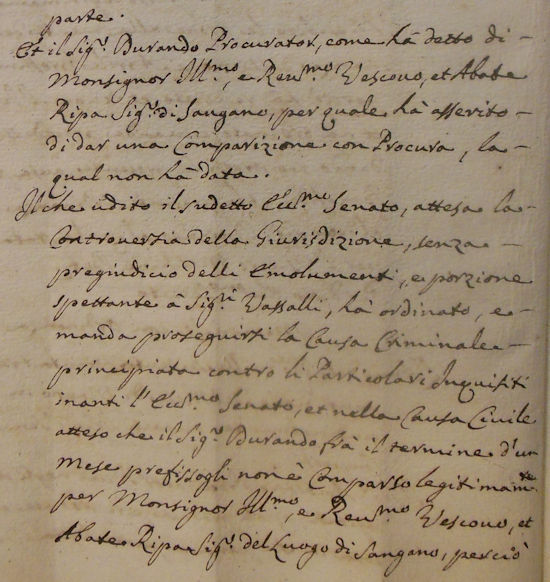 parte.
Et il Sig.r Durando Procurator, come hà detto di -
Monsignor Ill.mo, e Reu.mo Vescouo, et Abate
Ripa Sig.r di Sangano, per quale hà asserito -
di dar una Comparizione con Procura, la -
qual non hà data.
Il che udito il sudetto Ecc.mo Senato, attesa la -
Controuersia della Giurisdizione, senza -
pregiudicio delli Emolumenti, e porzione
spettante à Sig.ri Vassalli, hà ordinato, e -
manda proseguirsi la Causa Criminale -
principiata contro li Particolari Inquisiti
inanti l'Ecc.mo Senato, et nella Causa Ciuile
atteso che il Sig.r Durando frà il termine d'un
Mese prefissogli non è Comparso legitimam.te
per Monsignor Ill.mo, e Reu.mo Vescouo, et
Abate Ripa Sig.r del Luogo di Sangano, perciò